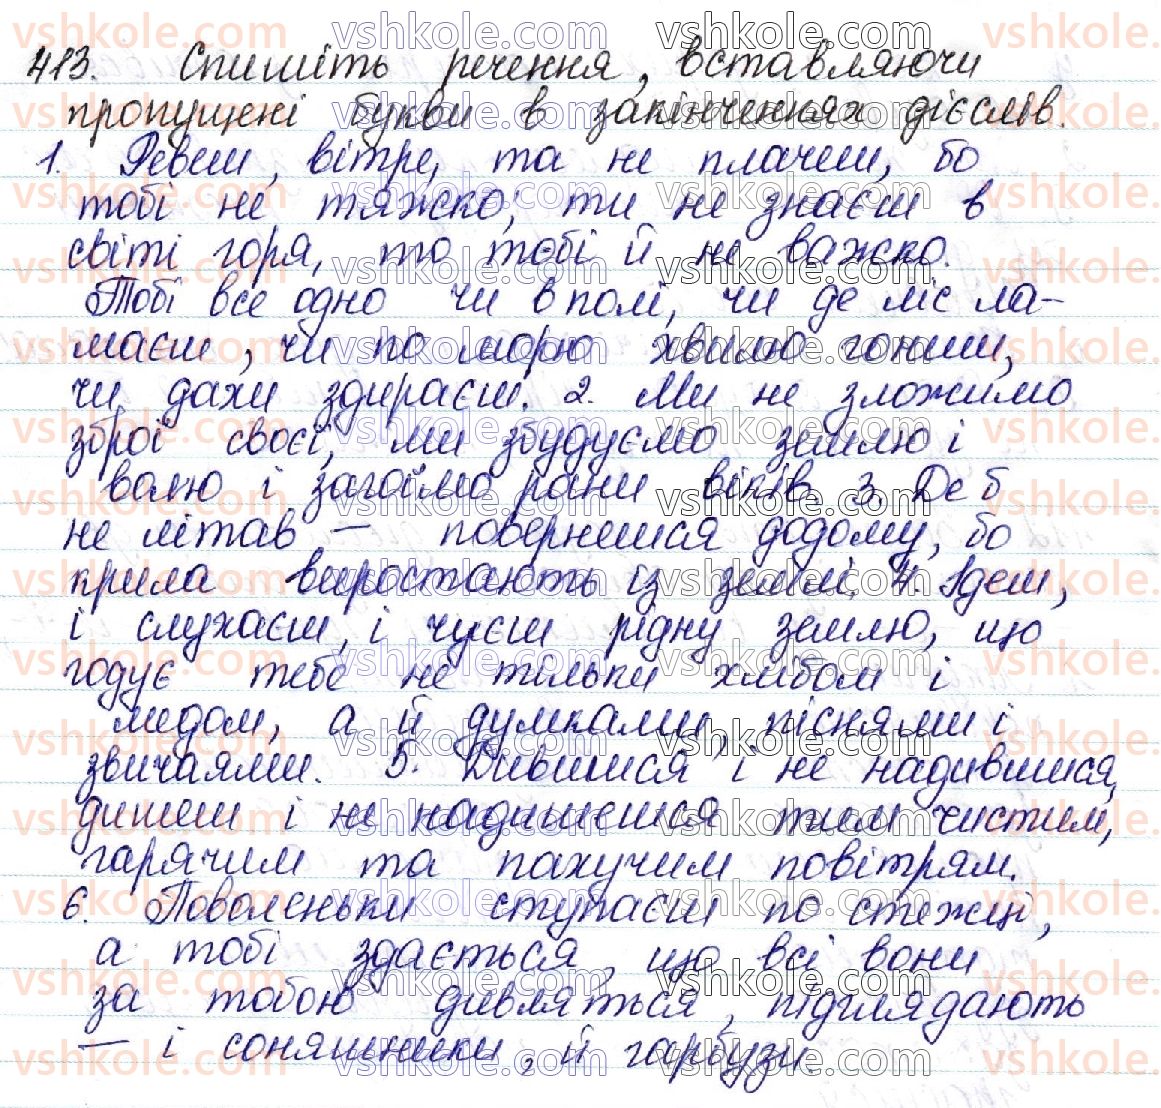 413. Спишіть речення, вставляючи
пропущені букви в закінченнях дієслів.
1. Ревеш, вітре, та не плачеш, бо
тобі не тяжко; ти не знаєш в
світі горя, то тобі й не важко.
Тобі все одно чи в полі, чи де ліс ла-
маєш, чи по морю хвилю гониш,
чи дахи здираєш. 2. Ми не зложимо
зброї своєї, ми збудуємо землю і
волю і загоїмо рани віків. 3. Де б
не літав — повернешся додому, бо
крила виростають із землі. 4. Ідеш,
і слухаєш, і чуєш рідну землю, що
годує тебе не тільки хлібом і
медом, а й думками, піснями і
звичаями. 5. Дивишся і не надивишся,
дишеш і не надишешся тим чистим,
гарячим та пахучим повітрям.
6. Поволеньки ступаєш по стежці,
а тобі здається, що всі вони
за тобою дивляться, підглядають
— і соняшники, й гарбузи.